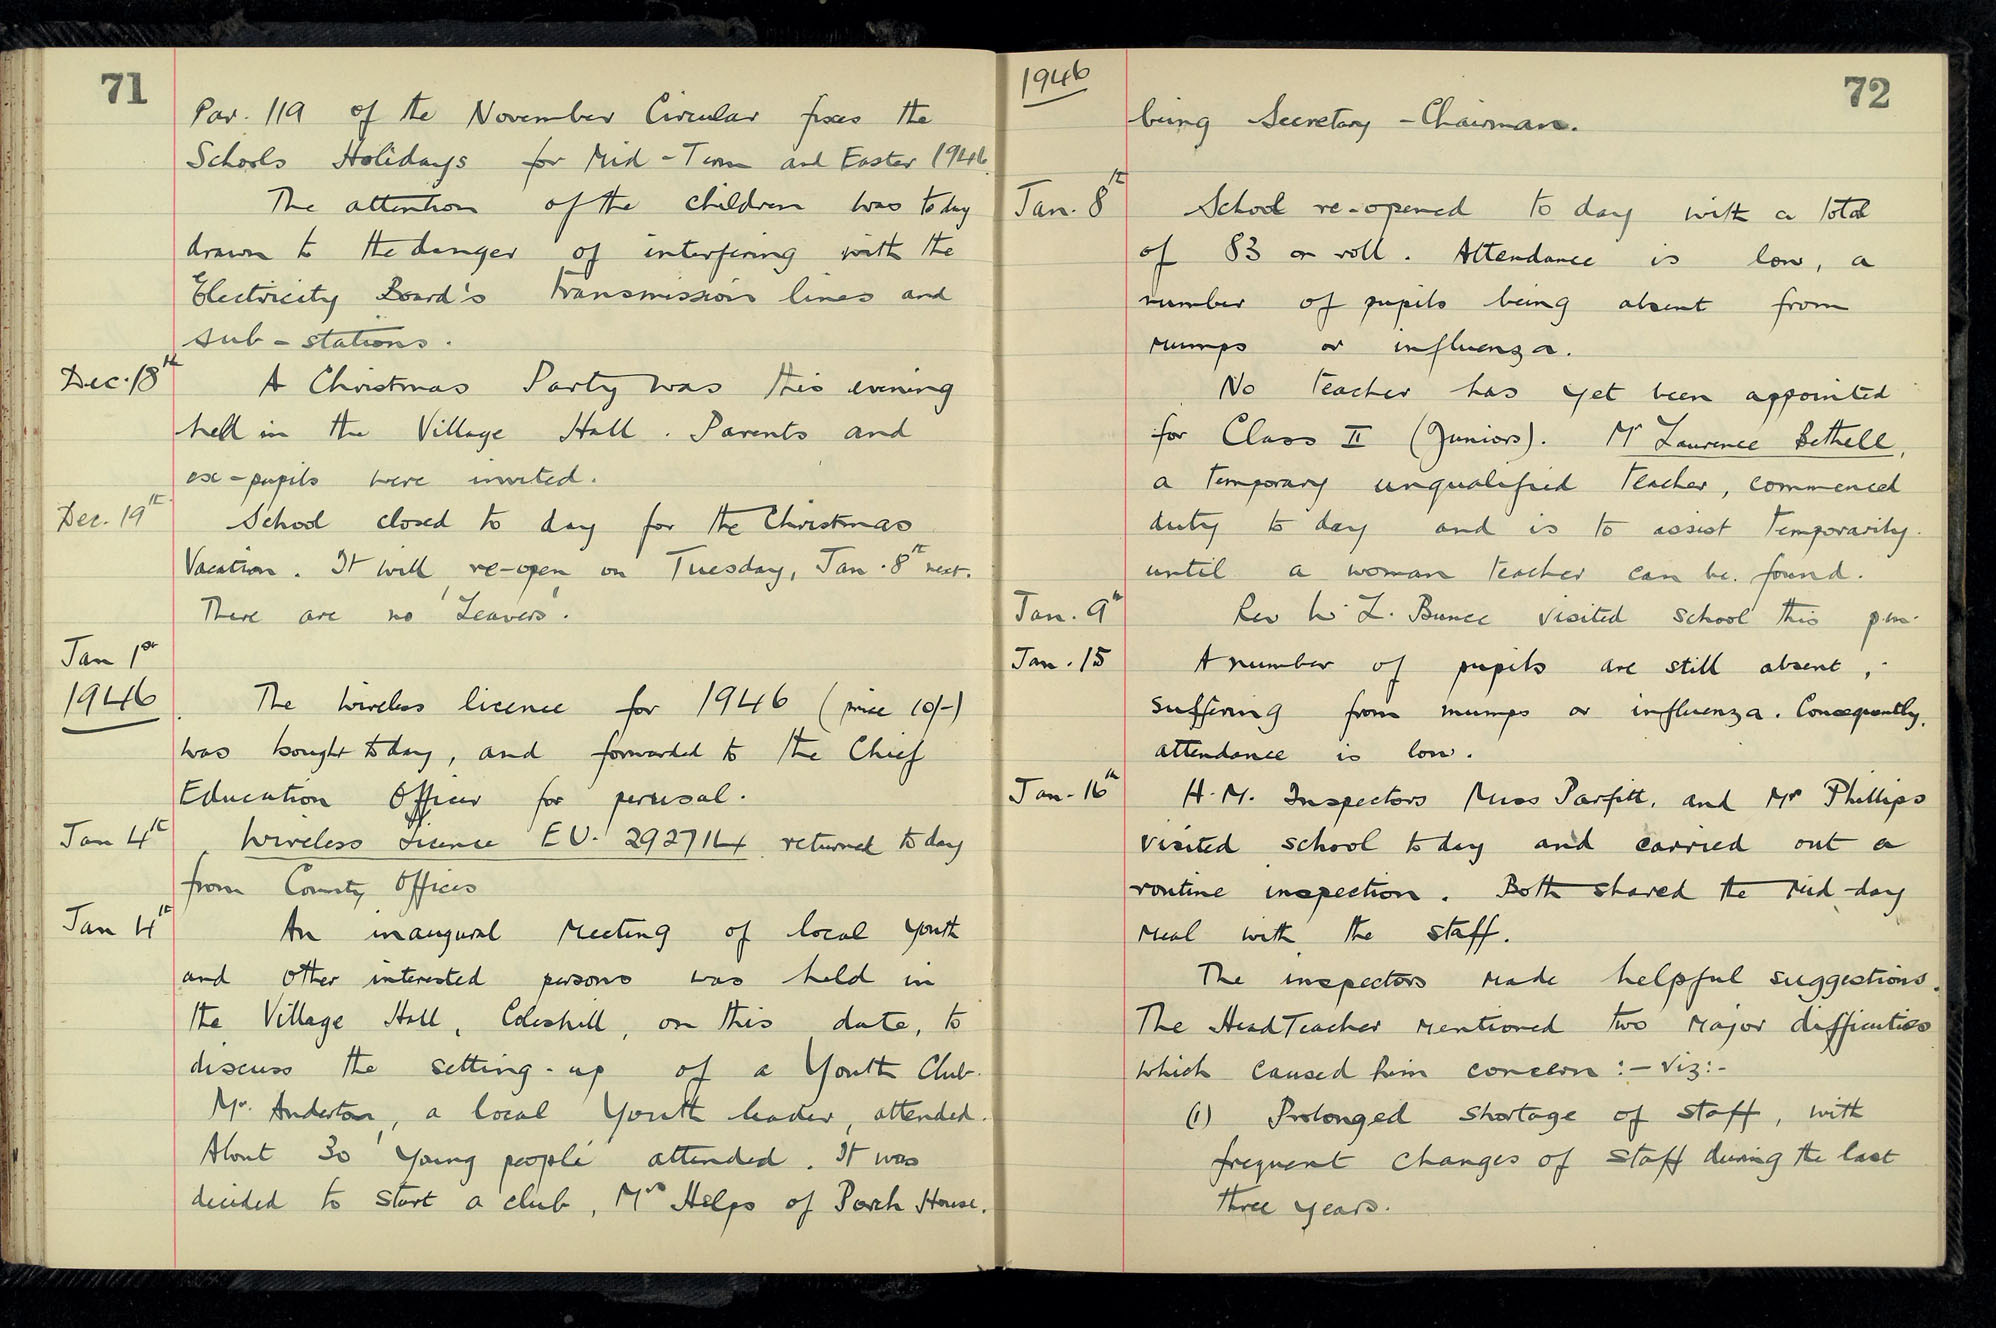 71
Par. 119 of the November Circular fixes the
Schools Holidays for Mid-Term and Easter 1946.
The attention of the children was today
drawn to the danger of interfering with the
Electricity Board's transmission lines and
sub-stations.
Dec. 18th A Christmas Party was this evening
held in the Village Hall. Parents and
ex-pupils were invited.
Dec. 19th School closed to day for the Christmas
Vacation. It will re-open on Tuesday, Jan. 8th next.
There are no 'Leavers'.
Jan 1st
1946 The wireless licence for 1946 (price 10/-)
was bought today, and forwarded to the Chief
Education Officer for perusal.
Jan 4th Wireless Licence EU. 292714 returned today
from County Offices
Jan 4th An inaugural meeting of local youth
and other interested persons was held in
the Village Hall, Coleshill, on this date, to
discuss the setting-up of a Youth Club.
Mr. Anderton, a local Youth leader, attended.
About 30 'young people' attended. It was
decided to start a club, Mrs Helps of Porch House.
1946
72
being Secretary-Chairman.
Jan. 8th School re-opened to day with a total
of 83 on roll. Attendance is low, a
number of pupils being absent from
mumps or influenza.
No teacher has yet been appointed
for Class II (Juniors). Mr Laurence Bethell,
a temporary unqualified teacher, commenced
duty to day and is to assist temporarily.
until a woman teacher can be found.
Jan. 9th Rev W. L. Bunce visited school this p.m.
Jan. 15 A number of pupils are still absent,
suffering from mumps or influenza. Consequently,
attendance is low.
Jan. 16th H.M. Inspectors Miss Parfitt, and Mr Phillips
visited school today and carried out a
routine inspection. Both shared the mid-day
meal with the staff.
The inspectors made helpful suggestions.
The HeadTeacher mentioned two major difficulties
which caused him concern :- viz:-
(1) Prolonged shortage of staff, with
frequent changes of staff during the last
three years.